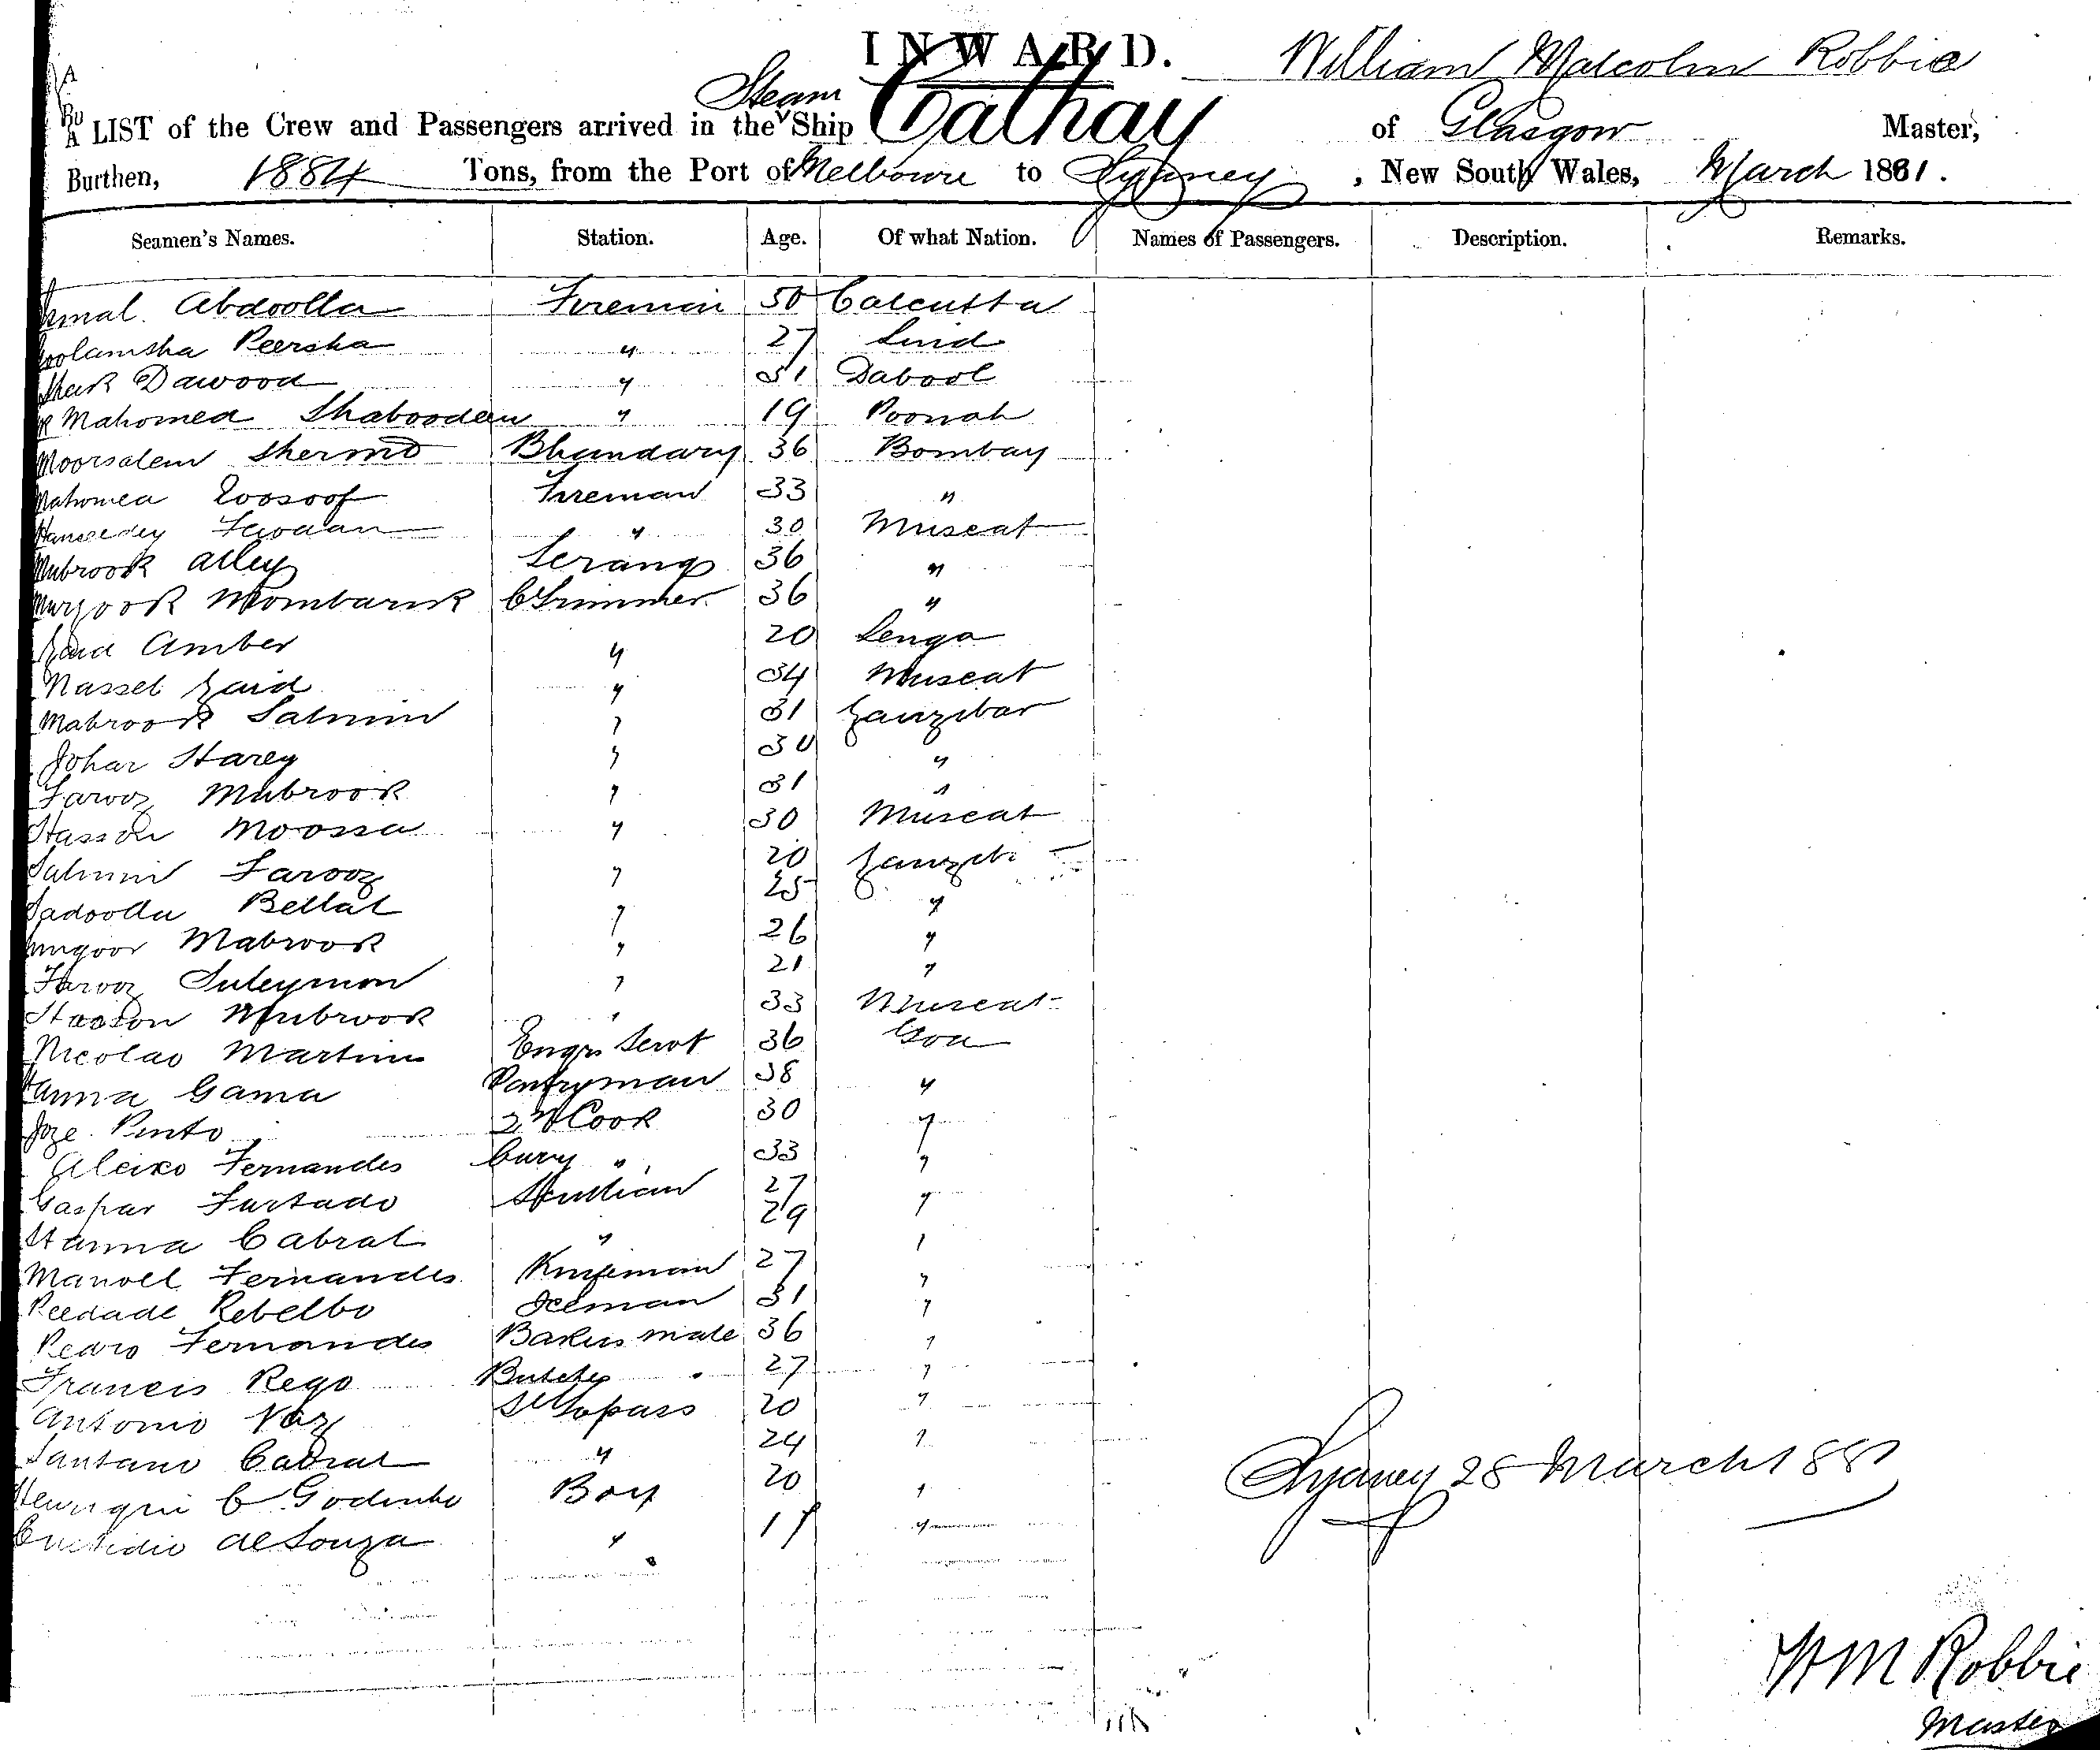 INWARD. William Malcolm Robbie
A LIST of the Crew and Passengers arrived in the Steam Ship Cathay of Glasgow Master,
Burthen, 1884 Tons, from the Port of Melbourne to Sydney, New South Wales, March 1881.
Seamen's Names. Station. Age. Of what Nation. Names of Passengers. Description. Remarks.
Abdoolla Fireman 50 Calcutta
Peersha " 27 Sind
Dawood " 31 Dabool
Mahomed Shaboodeen " 19 Poonah
Moorsalem Bhundary 36 Bombay
Mahomed Eoosoof Fireman 33 "
" 30 Muscat
Mubrook Alley Serang 36 "
Mombarik C Trimmer 36 "
Zaid Amber " 20 Lenga
Nasseb Zaid " 34 Muscat
Mabrook Salmin " 31 Zanzibar
Johar Harey " 30 "
Farooz Mubrook " 31 "
Hasson Moossa " 30 Muscat
Salmin Farooz " 20
Sadoolla Bellal " 25 "
Mabrook " 26 "
Farooz Suleymon " 21 "
Hasson Mubrook " 33 Muscat
Nicolao Martins Engrs Servt 36 Goa
Gama Pantryman 38 "
Joze Pinto 2nd Cook 30 "
Aleixo Fernandes Curry " 33 "
Gaspar Furtado Scullian 27 "
Cabral " 29 "
Manoel Fernandes Knifeman 27 "
Peedade Rebello Iceman 31 "
Pedro Fernandes Bakers mate 36 "
Francis Rego Butcher 27 "
Antonio Vaz Topass 20 "
Santano Cabral " 24 "
C Godinho Boy 20 "
de Souza " "
Sydney 28 March 1881
W M Robbie
Master